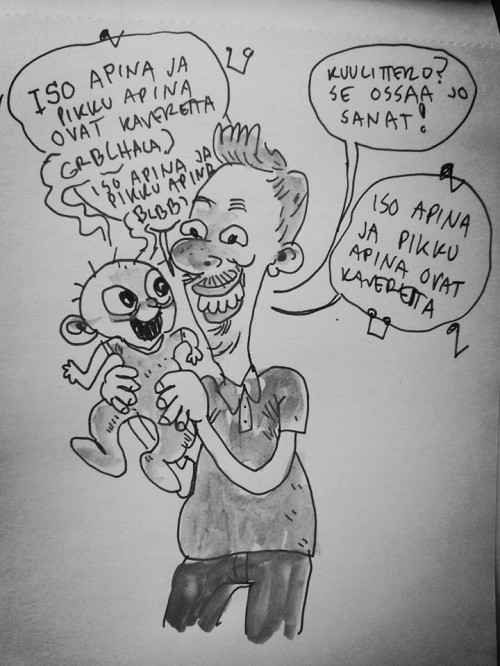 ISO APINA JA
PIKKU APINA
OVAT KAVEREITA
GRBLHALA,
ISO APINA JA
PIKKU APINA
BLBBI
KUULITTERO?
SE OSSAA JO
SANAT!
ISO APINA
JA PIKKU
APINA OVAT
KAVEREITA